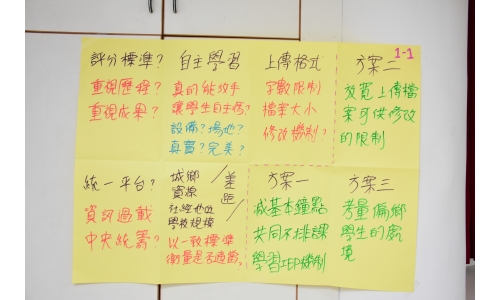 1-1
評分標準？
重視歷程？
重視成果？
自主學習
真的能放手
讓學生自主嗎？
設備？場地？
真實？完美？
上傳格式
字數限制
檔案大小
修改機制？
方案二
放寬上傳檔
案可供修改
的限制
統一平台？
資訊過載
中央統籌？
城鄉
資源
社經地位
學校規模
差距
以一致標準
衡量是否適當？
方案一
減基本鐘點
共同不排課
學習IEP機制
方案三
考量偏鄉
學生的處
境